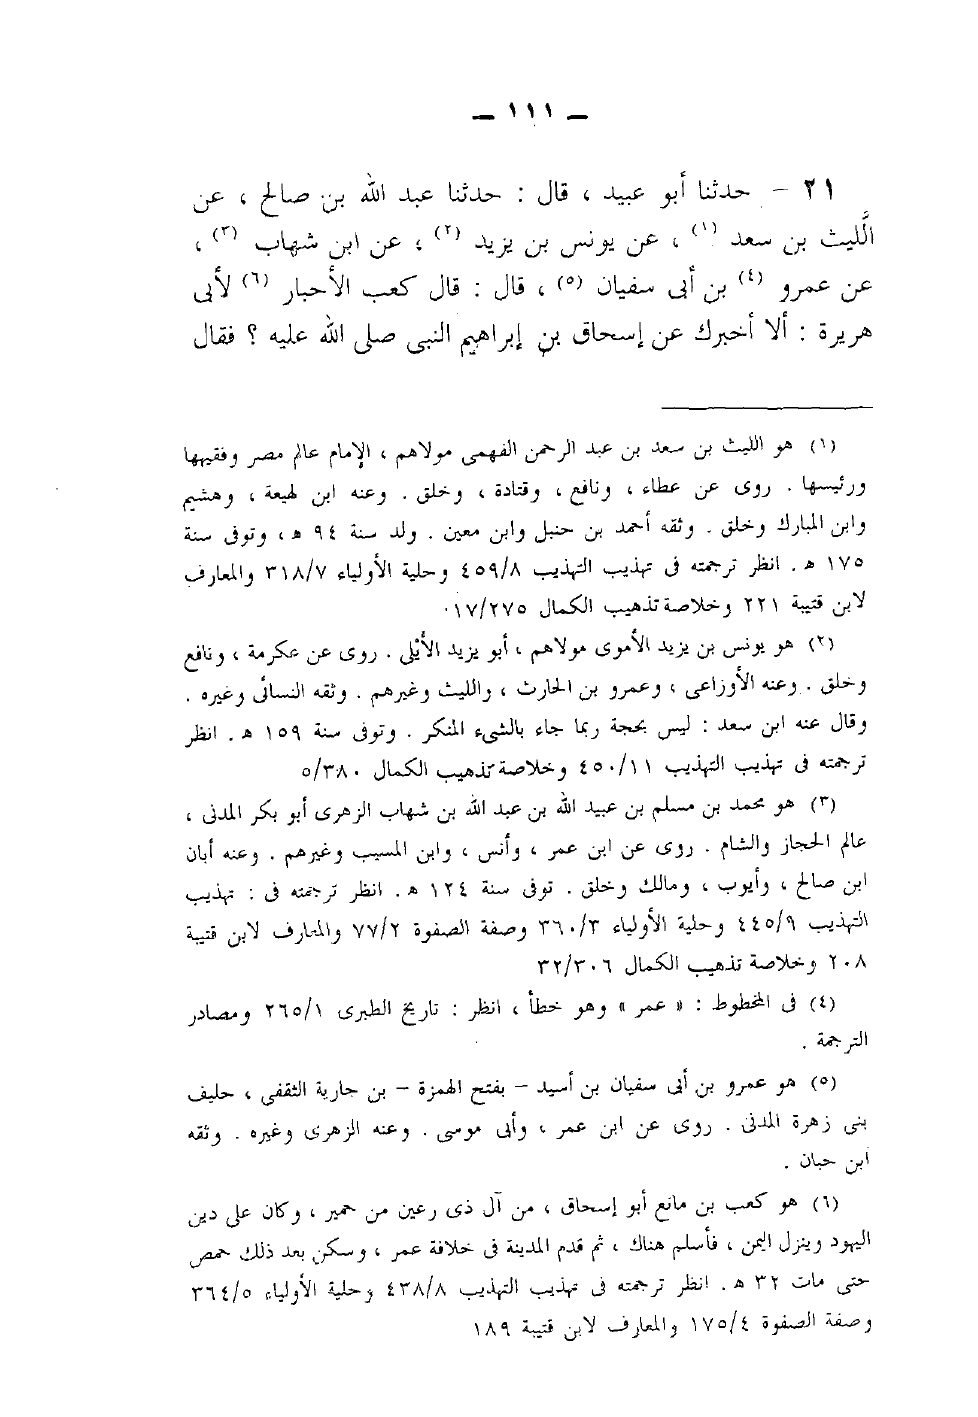 — ١١١ —
٢١ – حدثنا أبو عبيد ، قال : حدثنا عبد الله بن صالح ، عن
الَّليث بن سعد (١) ، عن يونس بن يزيد (٢) ، عن ابن شهاب (٣) ،
عن عمرو (٤) بن أبى سفيان (٥) ، قال : قال كعب الأحبار (٦) لأبى
هريرة : ألا أخبرك عن إسحاق بن إبراهيم النبى صلى الله عليه ؟ فقال
(١) هو الليث بن سعد بن عبد الرحمن الفهمى مولاهم ، الإمام عالم مصر وفقيهها
ورئيسها . روى عن عطاء ، ونافع ، وقتادة ، وخلق . وعنه ابن لهيعة ، وهشيم
وابن المبارك وخلق . وثقه أحمد بن حنبل وابن معين . ولد سنة ٩٤ هـ ، وتوفى سنة
١٧٥ هـ . انظر ترجمته فى تهذيب التهذيب ٤٥٩/٨ وحلية الأولياء ٣١٨/٧ والمعارف
لابن قتيبة ٢٢١ وخلاصة تذهيب الكمال ١٧/٢٧٥.
(٢) هو يونس بن يزيد الأموى مولاهم ، أبو يزيد الأيْلى . روى عن عكرمة ، ونافع
وخلق . وعنه الأوزاعى ، وعمرو بن الحارث ، والليث وغيرهم . وثقه النسائى وغيره .
وقال عنه ابن سعد : ليس بحجة ربما جاء بالشىء المنكر . وتوفى سنة ١٥٩ هـ . انظر
ترجمته فى تهذيب التهذيب ٤٥٠/١١ وخلاصة تذهيب الكمال ٥/٣٨٠
(٣) هو محمد بن مسلم بن عبيد الله بن عبد الله بن شهاب الزهرى أبو بكر المدنى ،
عالم الحجاز والشام . روى عن ابن عمر ، وأنس ، وابن المسيب وغيرهم . وعنه أبان
ابن صالح ، وأيوب ، ومالك وخلق . توفى سنة ١٢٤ هـ . انظر ترجمته فى : تهذيب
التهذيب ٤٤٥/٩ وحلية الأولياء ٣٦٠/٣ وصفة الصفوة ٧٧/٢ والمعارف لابن قتيبة
٢٠٨ وخلاصة تذهيب الكمال ٣٢/٣٠٦
(٤) فى المخطوط : « عمر » وهو خطأ ، انظر : تاريخ الطبرى ٢٦٥/١ ومصادر
الترجمة .
(٥) هو عمرو بن أبى سفيان بن أسيد – بفتح الهمزة – بن جارية الثقفى ، حليف
بنى زهرة المدنى . روى عن ابن عمر ، وأبى موسى . وعنه الزهرى وغيره . وثقه
ابن حبان .
(٦) هو كعب بن مانع أبو إسحاق ، من آل ذى رعين من حمير ، وكان على دين
اليهود وينزل اليمن ، فأسلم هناك ، ثم قدم المدينة فى خلافة عمر ، وسكن بعد ذلك حمص
حتى مات ٣٢ هـ . انظر ترجمته فى تهذيب التهذيب ٤٣٨/٨ وحلية الأولياء ٣٦٤/٥
وصفة الصفوة ١٧٥/٤ والمعارف لابن قتيبة ١٨٩